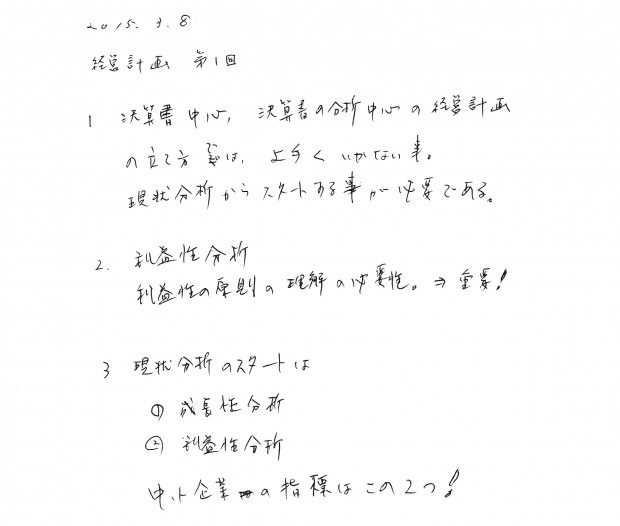 2015. 3. 8
経営計画 第1回
1 決算書中心, 決算書の分析中心の経営計画
の立て方では、上手くいかない事。
現状分析からスタートする事が必要である。
2. 利益性分析
利益性の原則の理解の必要性。⇒ 重要!
3 現状分析のスタートは
① 成長性分析
② 利益性分析
中小企業の指標はこの2つ!